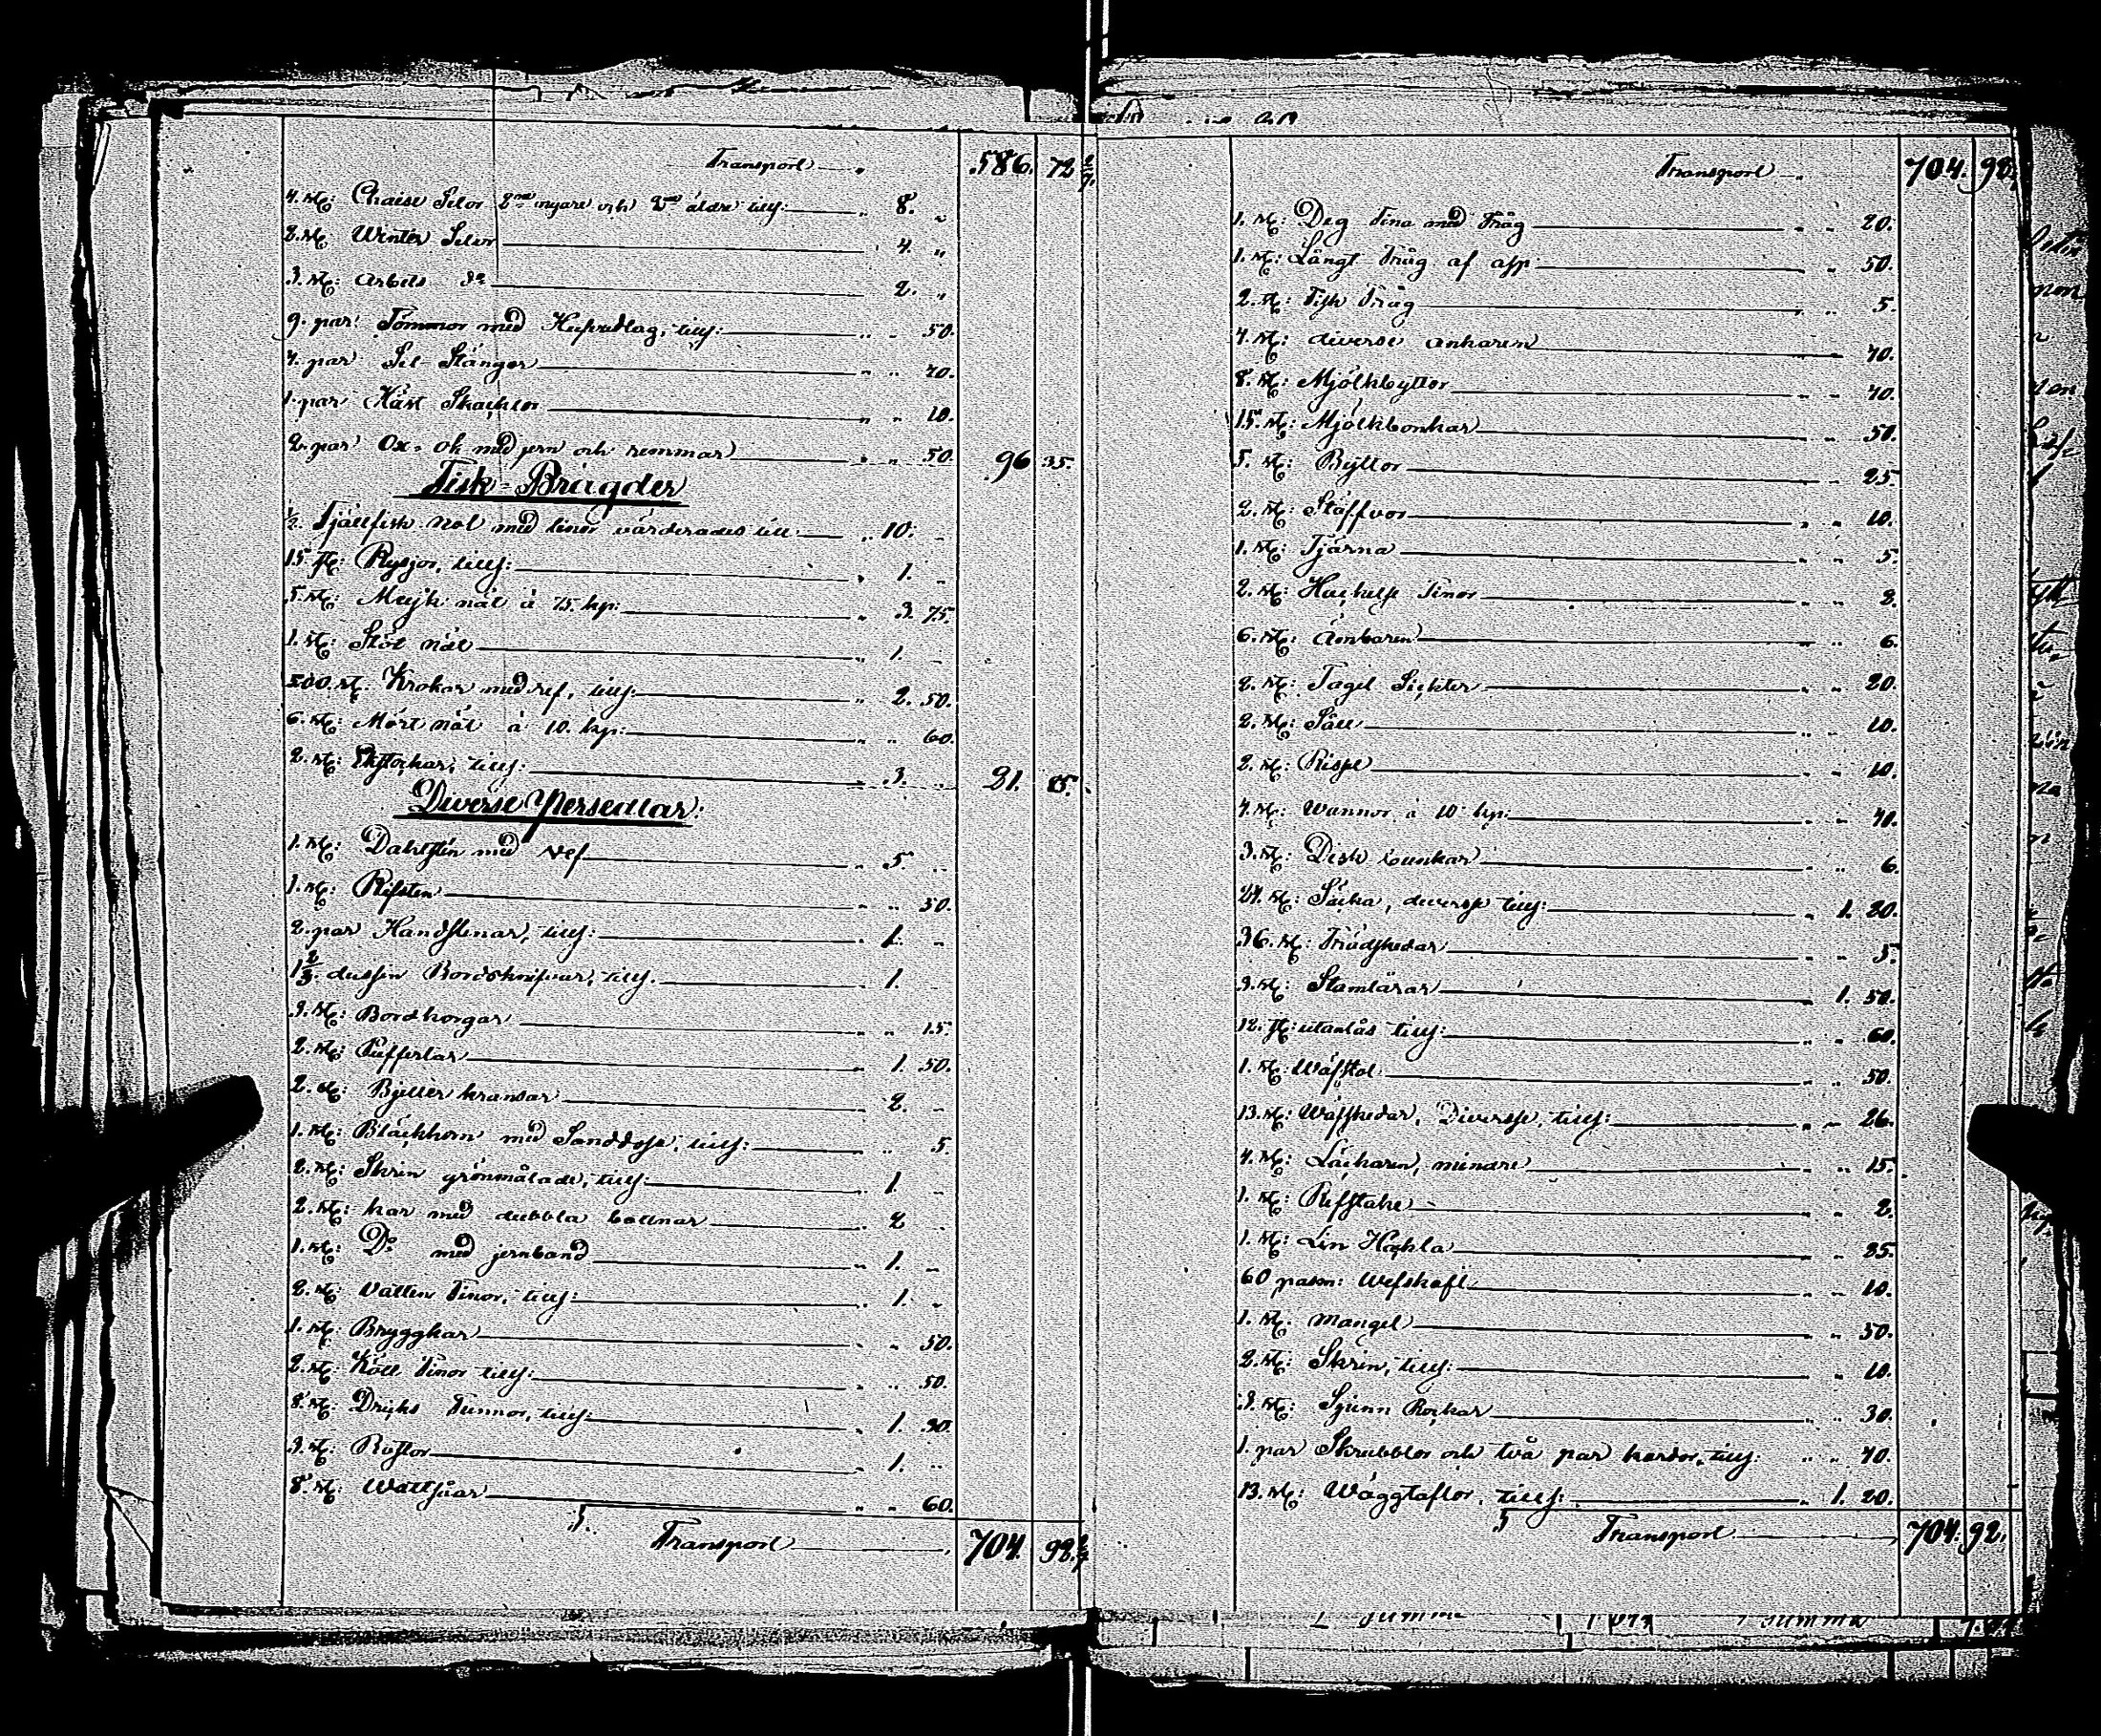 Transport 586. 72 2/7.
4. st: Chaise Selor 2ne nyare och 2ne äldre tills: „ 8. „
2. st: Winter Selor „ 4. „
3. st: Arbets do „ 2. „
9. par: Tömmor med Hufvudlag, tills: „ „ 50.
4. par Sel-Stänger „ „ 40.
1. par Häst Skacklor „ „ 10.
2. par Ox-ok med jern och remmar „ „ 50. 96 35.
Fisk-Brägder
1/2 Fjällfisk-not med linor värderades till: „ 10. „
15. st: Rysjor, tills: „ 1. „
5. st: nät à 75. kp: „ 3. 75.
1. st: Stöt nät „ 1. „
500. st: Krokar med ref, tills: „ 2. 50.
6. st: Mört nät à 10. kp: „ „ 60.
2. st: Ekstockar, tills: „ 3. „ 21. 85.
Diverse Persedlar:
1. st: med Vef „ 5. „
1. st: Rifsten „ „ 50.
2. par Handstenar, tills: „ 1. „
1 2/3. dussin Bordsknifvar, tills. „ 1. „
3. st: Bordkorgar „ „ 15.
2. st: Pufferlar „ 1. 50.
2. st: Bjeller kransar „ 2. „
1. st: Bläckhorn med Sanddosa, tills: „ „ 5
2. st: Skrin grönmålade, tills „ 1. „
2. st: kar med dubbla bottnar „ 2 „
1. st: Do med jernband „ 1. „
2. st: Vatten Tinor, tills: „ 1. „
1. st: Bryggkar „ „ 50.
2. st: Kött Tinor tills: „ „ 50.
8. st: Dricks Tunnor, tills: „ 1. 30.
3. st: „ 1. „
8. st: Wattsåar „ „ 60.
Transport 704. 92. 2/7
Transport 704. 92.
1. st: Deg Tina med Tråg „ „ 20.
1. st: Långt Tråg af asp „ „ 50.
2. st: Fisk Tråg „ „ 5.
4. st: diverse ankaren „ „ 40.
8. st: Mjölkbyttor „ „ 40.
15. st: Mjölkbonkar „ „ 50.
5. st: Byttor „ „ 25.
2. st: Stäffvor „ „ 10.
1. st: Tjärna „ „ 5.
2. st: Tinor „ „ 8.
6. st: Ämbaren „ „ 6.
2. st: Tagel Sicktor „ „ 20.
2. st: Såll „ „ 10.
2. st: Rispl „ „ 10.
4. st: Wannor à 10 kp: „ „ 40.
3. st: Disk bunkar „ „ 6.
24. st: Säcka, diverse tills: „ 1. 20.
36. st: Trädskedar „ „ 5.
3. st: Stamlårar „ 1. 50.
12. st: utanlås tills: „ „ 60.
1. st: Wäfstol „ „ 50.
13. st: Wäfskedar, Diverse, tills: „ „ 26.
4. st: Låckaren, mindre „ „ 15.
1. st: Refstake „ „ 2.
1. st: Lin Häckla „ „ 25.
60 pasm: Wefskaft „ „ 10.
1. st: mangel „ „ 50.
2. st: Skrin, tills: „ „ 10.
3. st: Spinn Rockar „ „ 30.
1. par Skrubblor och två par kardor, tills: „ „ 40.
13. st: Wäggtaflor, tills: „ 1. 20.
Transport 704. 92.